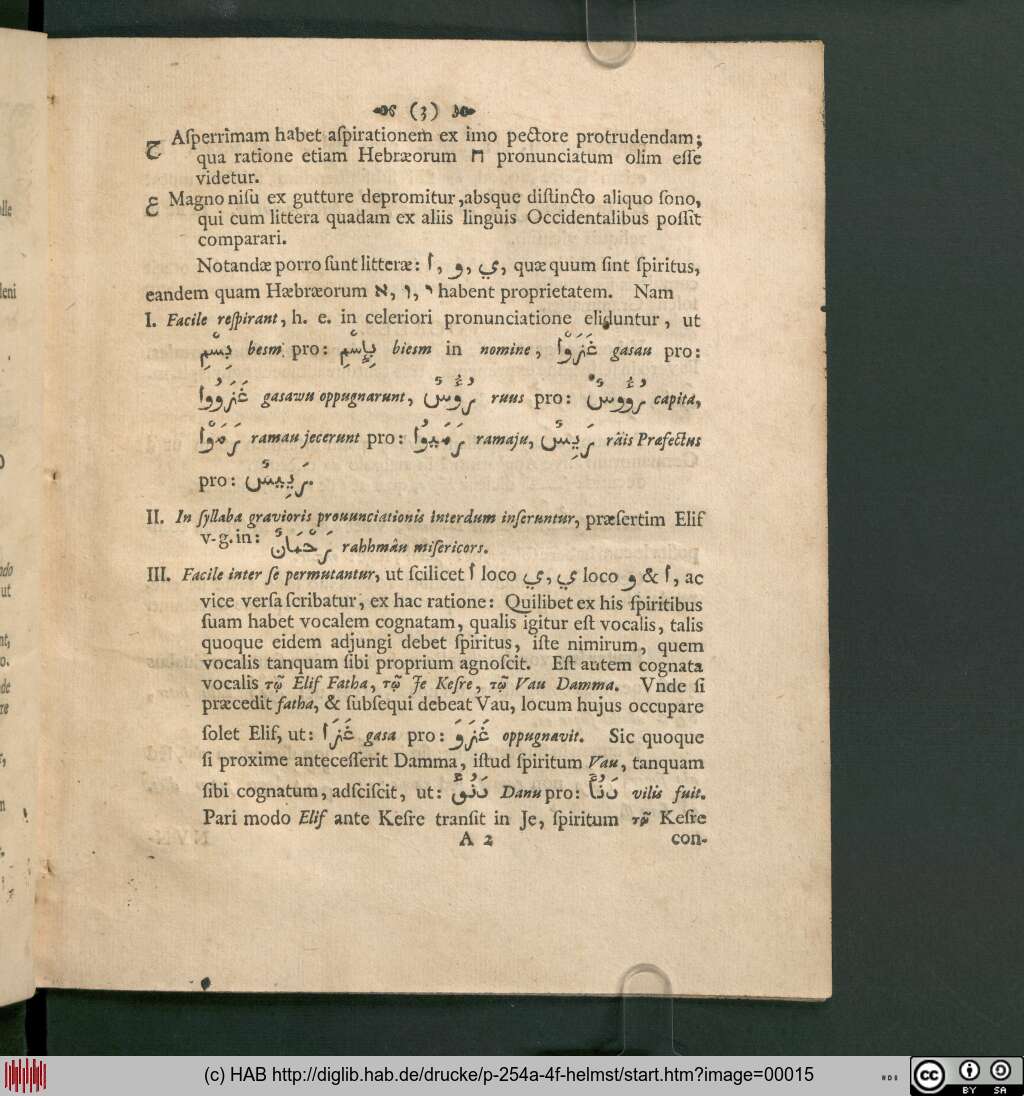 (3)
ح Aſperrimam habet aſpirationem ex imo pectore protrudendam;
qua ratione etiam Hebræorum ח pronunciatum olim eſſe
videtur.
ع Magno niſu ex gutture depromitur, absque diſtincto aliquo ſono,
qui cum littera quadam ex aliis linguis Occidentalibus poſſit
comparari.
Notandæ porro ſunt litteræ: ا, و, ي, quæ quum ſint ſpiritus,
eandem quam Hæbræorum א, ו, י habent proprietatem. Nam
I. Facile reſpirant, h. e. in celeriori pronunciatione eliduntur, ut
بِسْمِ besm pro: بِإِسْمِ biesm in nomine, غَزَوْا gasau pro:
غَزَوُوا gasawu oppugnarunt, رُوُسٌ ruus pro: رُووُسٌ capita,
رَمَوْا ramau jecerunt pro: رَمَيوُا ramaju, رَيِسٌ râis Præfectus
pro: رَيِيسٌ.
II. In ſyllaba gravioris prouunciationis interdum inſeruntur, præſertim Elif
v. g. in: رَحْمَانٌ rahhmân miſericors.
III. Facile inter ſe permutantur, ut ſcilicet ا loco ي, ي loco و & ا, ac
vice verſa ſcribatur, ex hac ratione: Quilibet ex his ſpiritibus
ſuam habet vocalem cognatam, qualis igitur eſt vocalis, talis
quoque eidem adjungi debet ſpiritus, iſte nimirum, quem
vocalis tanquam ſibi proprium agnoſcit. Eſt autem cognata
vocalis τῷ Elif Fatha, τῷ Je Keſre, τῷ Vau Damma. Vnde ſi
præcedit fatha, & ſubſequi debeat Vau, locum hujus occupare
ſolet Elif, ut: غَزَا gasa pro: غَزَوَ oppugnavit. Sic quoque
ſi proxime anteceſſerit Damma, iſtud ſpiritum Vau, tanquam
ſibi cognatum, adſciſcit, ut: دَنُؤَ Danu pro: دَنُأَ vilis fuit.
Pari modo Elif ante Keſre tranſit in Je, ſpiritum τῷ Keſre
A 2 con-
(c) HAB http://diglib.hab.de/drucke/p-254a-4f-helmst/start.htm?image=00015
cc BY SA